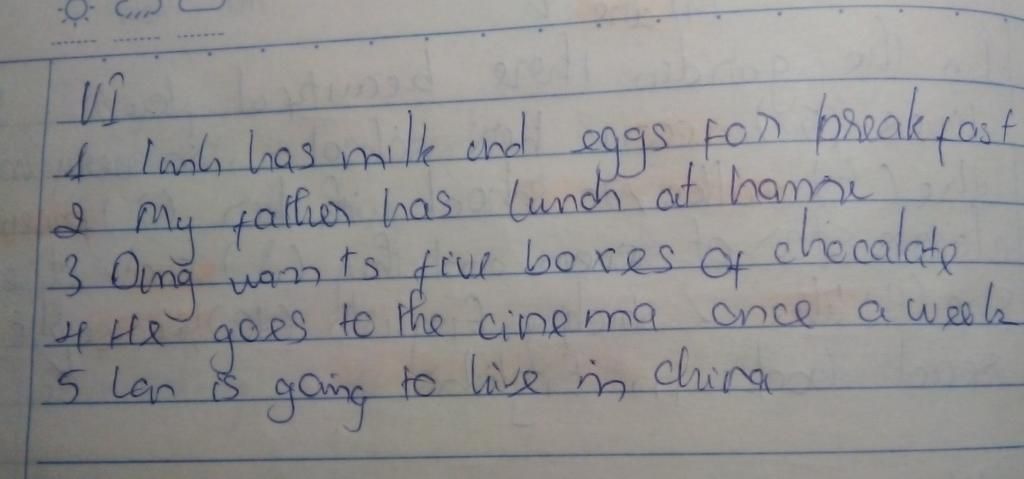 VI
1 Linh has milk and eggs for breakfast
2 My father has lunch at home
3 Dung wants five boxes of chocalate
4 He goes to the cinema once a week
5 Lan is going to live in china